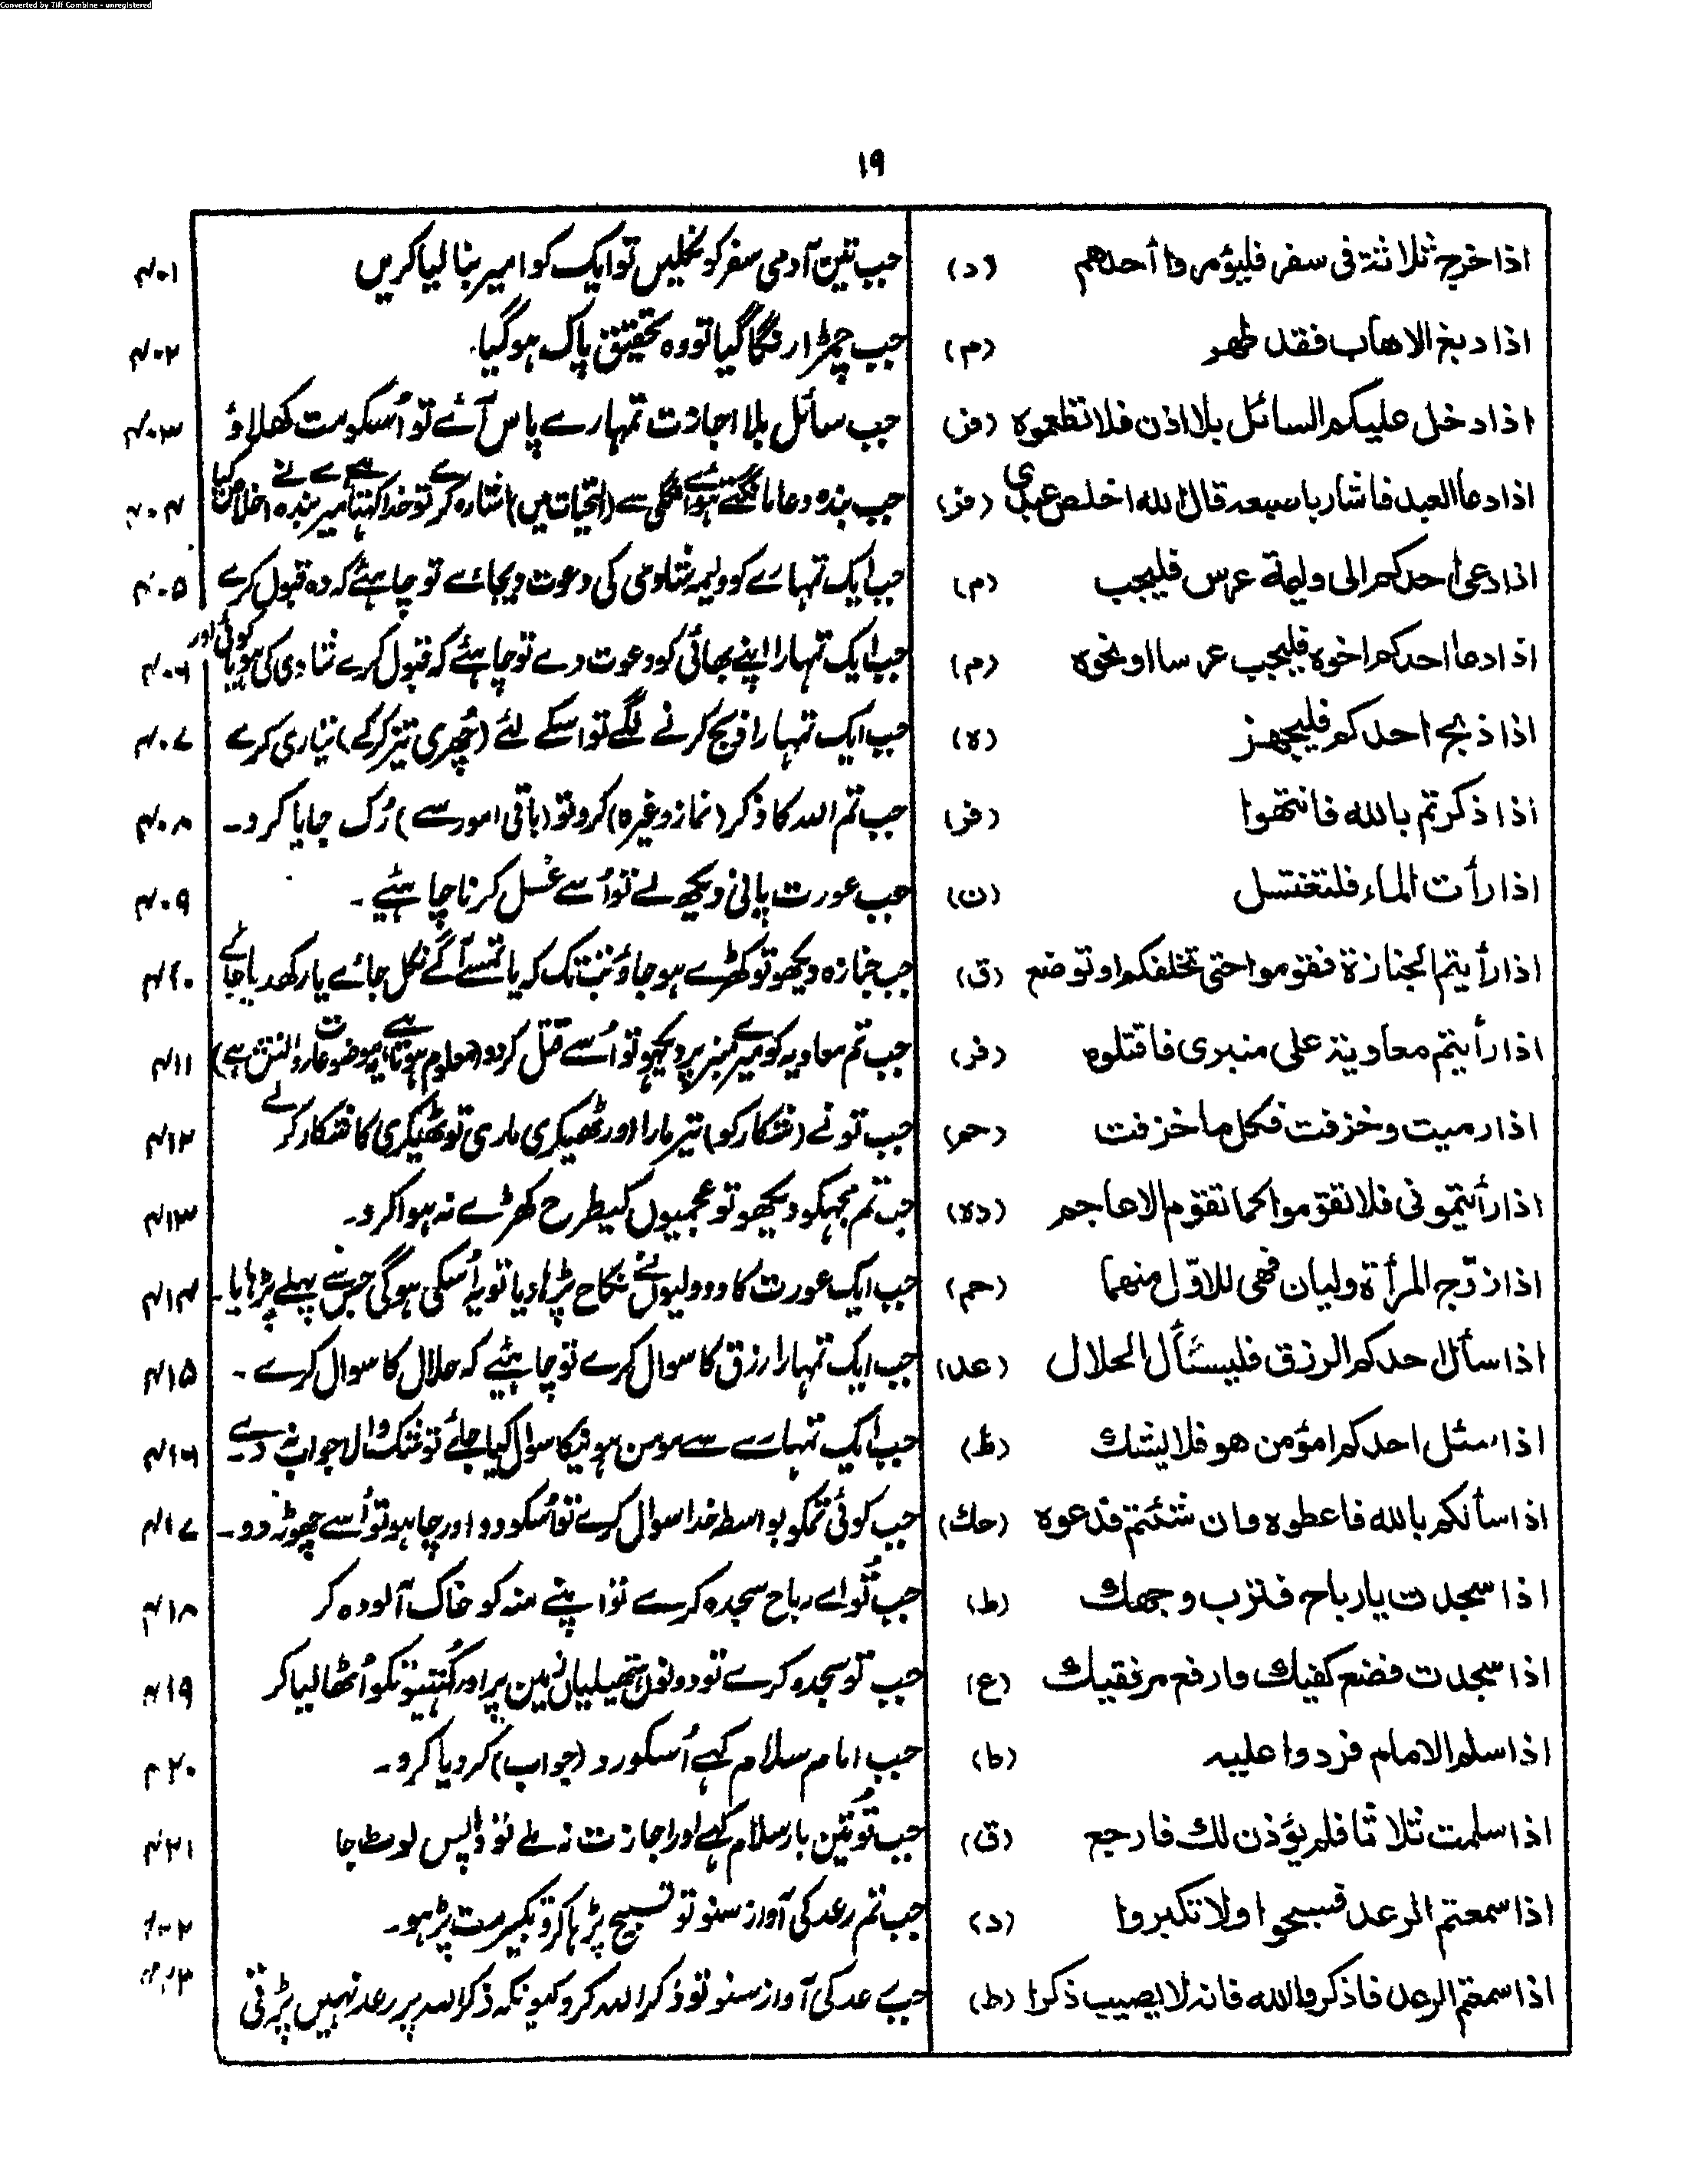 Converted by Tiff Combine - unregistered
۱۹
اذا خرج ثلاثة فى سفر فليؤمروا أحدهم (د) جب تین آدمی سفر کو نکلیں تو ایک کو امیر بنا لیا کریں ۴۰۱
اذا دبغ الاهاب فقد طهر (م) جب چمڑا رنگا گیا تو وہ تحقیق پاک ہو گیا۔ ۴۰۲
اذا دخل عليكم السائل بلا اذن فلا تطعموه (فر) جب سائل بلا اجازت تمہارے پاس آئے تو اُسکو مت کھلاؤ ۴۰۳
اذا دعا العبد فاشار باصبعه قال الله اخلص عبدى (فر) جب بندہ دعا مانگتے ہوئے انگلی سے (التحیات میں) اشارہ کرے تو خدا کہتا ہے میرے بندہ نے اخلاص کیا ۴۰۴
اذا دعى احدكم الى وليمة عرس فليجب (م) جب ایک تمہارے کو ولیمہ شادی کی دعوت دیجائے تو چاہئے کہ وہ قبول کرے ۴۰۵
اذا دعا احدكم اخوه فليجب عرسا او نحوه (م) جب ایک تمہارا اپنے بھائی کو دعوت دے تو چاہئے کہ قبول کرے شادی کی ہو یا کوئی اور ۴۰۶
اذا ذبح احدكم فليجهز (ه) جب ایک تمہارا ذبح کرنے لگے تو اسکے لئے (چُھری تیز کرکے) تیاری کرے ۴۰۷
اذا ذكرتم بالله فانتهوا (فر) جب تم اللہ کا ذکر (نماز وغیرہ) کرو تو (باقی امور سے) رُک جایا کرو۔ ۴۰۸
اذا رأت الماء فلتغتسل (ن) جب عورت پانی دیکھ لے تو اُسے غسل کرنا چاہئیے۔ ۴۰۹
اذا رأيتم الجنازة فقوموا حتى تخلفكم او توضع (ق) جب جنازہ دیکھو تو کھڑے ہو جاؤ جب تک کہ یا تمسے آگے نکل جائے یا رکھدیا جائے ۴۱۰
اذا رأيتم معاوية على منبرى فاقتلوه (فر) جب تم معاویہ کو میرے منبر پر دیکھو تو اُسے قتل کردو (معلوم ہوتا ہے یہ موضوعات روافض ہے) ۴۱۱
اذا رميت وخزفت فكل ما خزفت (حم) جب تو نے (شکار کو) تیر مارا اور ٹھیکری ماری تو ٹھیکری کا شکار کر لے ۴۱۲
اذا رأيتمونى فلا تقوموا كما تقوم الاعاجم (ده) جب تم مجہکو دیکھو تو عجمیوں کیطرح کھڑے نہ ہوا کرو۔ ۴۱۳
اذا زوّج المرأة وليان فهى للاوّل منهما (حم) جب ایک عورت کا دو ولیوں نے نکاح پڑھا دیا تو یہ اُسکی ہوگی جس نے پہلے پڑہایا۔ ۴۱۴
اذا سأل احدكم الرزق فليسئأل الحلال (عد) جب ایک تمہارا رزق کا سوال کرے تو چاہئیے کہ حلال کا سوال کرے۔ ۴۱۵
اذا سئل احدكم امؤمن هو فلا يشك (ط) جب ایک تمہارے سے مومن ہونیکا سوال کیا جائے تو شک والا جواب نہ دے۔ ۴۱۶
اذا سألكم بالله فاعطوه وان شئتم فدعوه (حك) جب کوئی تمکو بواسطہ خدا سوال کرے تو اُسکو دو اور چاہو تو اُسے چھوڑ دو۔ ۴۱۷
اذا سجدت يا رباح فترب وجهك (ط) جب تُو اے رباح سجدہ کرے تو اپنے منہ کو خاک آلودہ کر ۴۱۸
اذا سجدت فضع كفيك وارفع مرفقيك (ع) جب تو سجدہ کرے تو دونوں ہتھیلیاں زمین پر اور کُہنیونکو اُٹھا لیا کر ۴۱۹
اذا سلم الامام فردوا عليه (ط) جب امام سلام کہے اُسکو رد (جواب) کر دیا کرو۔ ۴۲۰
اذا سلمت ثلاثا فلم يؤذن لك فارجع (ق) جب تُو تین بار سلام کہے اور اجازت نہ ملے تو واپس لوٹ جا ۴۲۱
اذا سمعتم الرعد فسبحوا ولا تكبروا (د) جب تم رعد کی آواز سنو تو تسبیح پڑہا کرو تکبیر مت پڑہو۔
اذا سمعتم الرعد فاذكروا الله فانه لا يصيب ذكرا (ط) جب رعد کی آواز سنو تو ذکر اللہ کرو کیونکہ ذکر اللہ پر رعد نہیں پڑتی